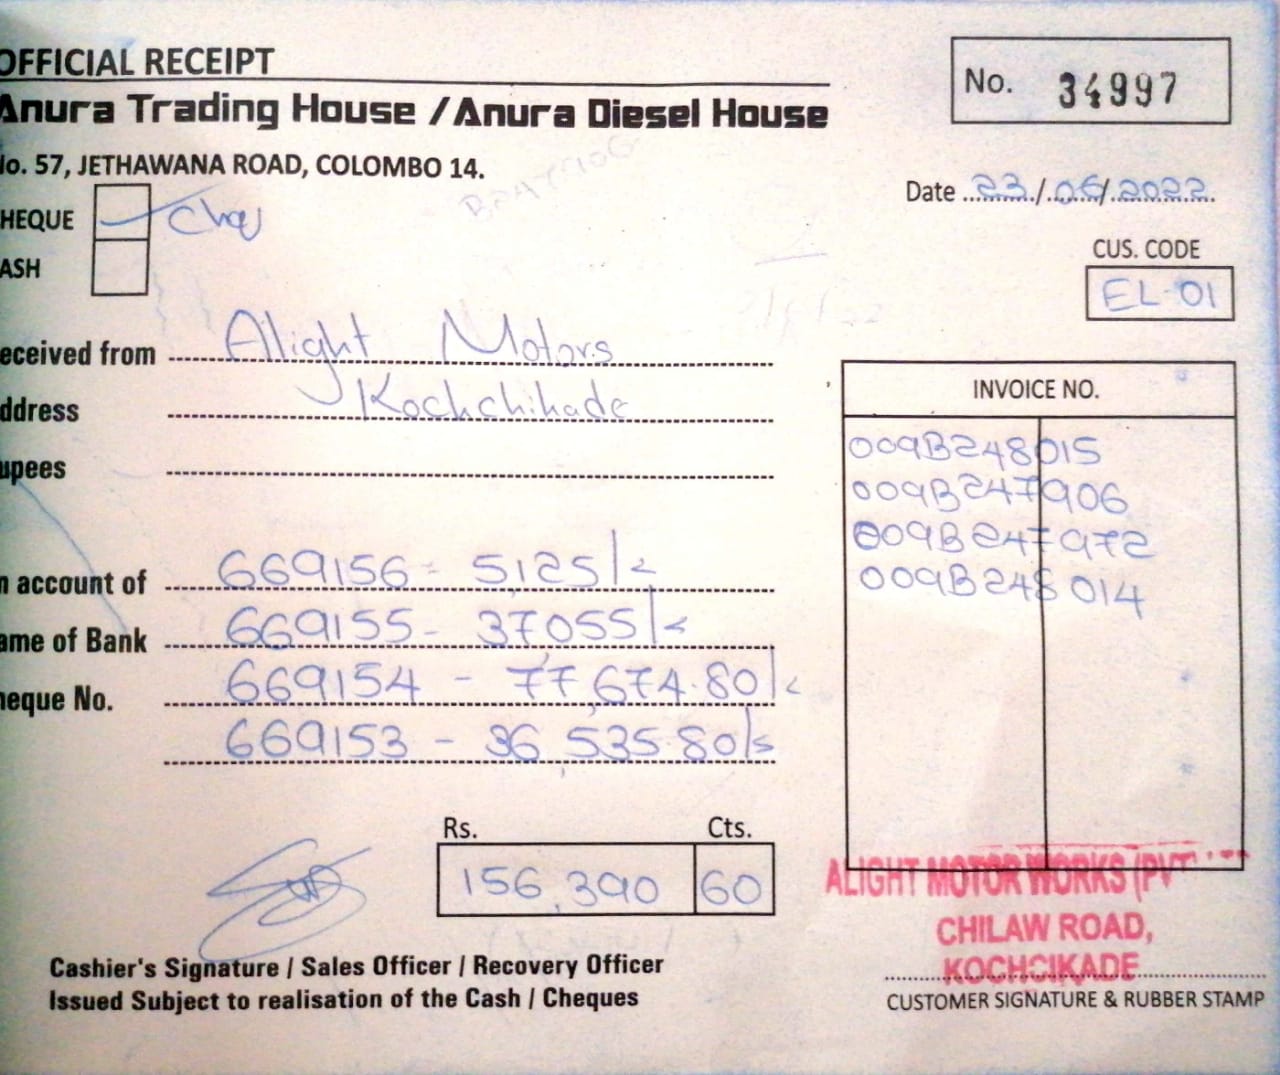 OFFICIAL RECEIPT
No. 34997
Anura Trading House / Anura Diesel House
No. 57, JETHAWANA ROAD, COLOMBO 14.
Date 23/06/2022
HEQUE
ASH
CUS. CODE
EL-01
eceived from Alight Motors
ddress Kochchikade
upees
INVOICE NO.
009B248015
009B247906
009B247972
009B248014
n account of 669156 - 5,125/=
ame of Bank 669155 - 37,055/=
heque No. 669154 - 77,674.80/=
669153 - 36,535.80/=
Rs. Cts.
156,390 60
ALIGHT MOTOR WORKS (PV
CHILAW ROAD,
KOCHCIKADE
Cashier's Signature / Sales Officer / Recovery Officer
Issued Subject to realisation of the Cash / Cheques
CUSTOMER SIGNATURE & RUBBER STAMP